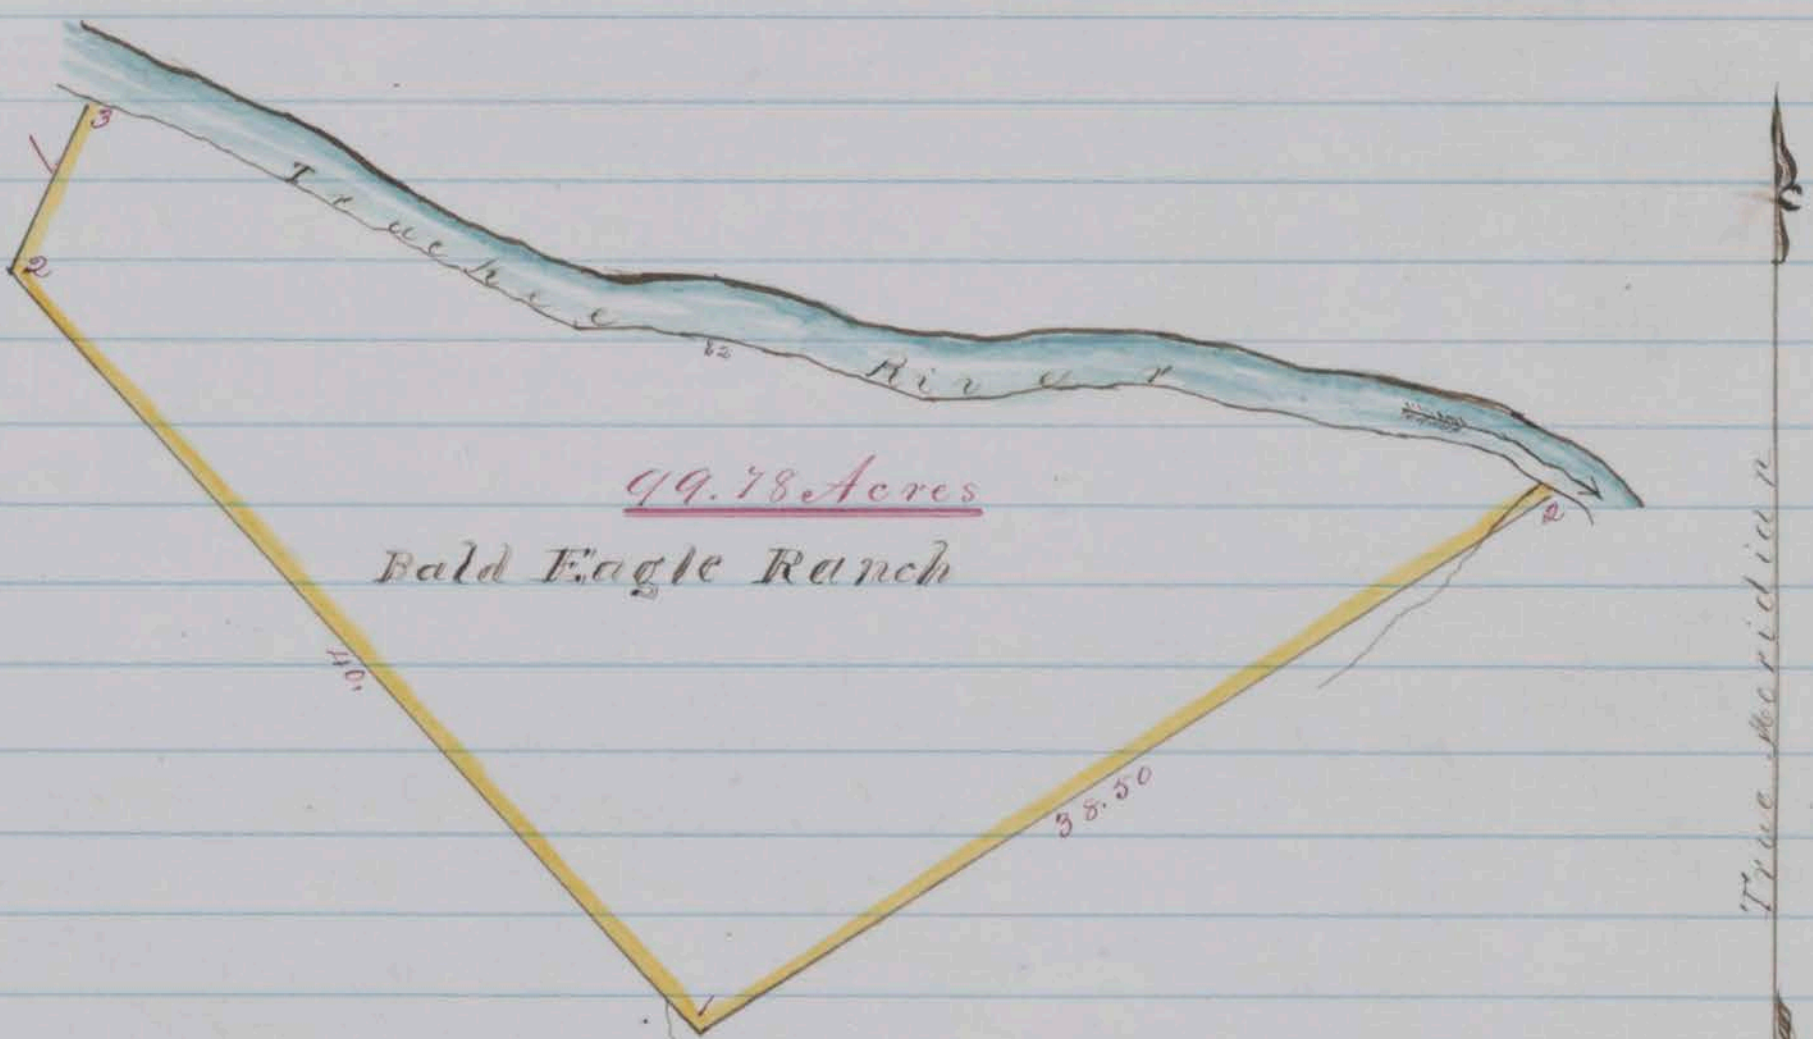 3
2
Truckee River
62
99.78 Acres
2
Bald Eagle Ranch
40.
38.50
1
True Meridian